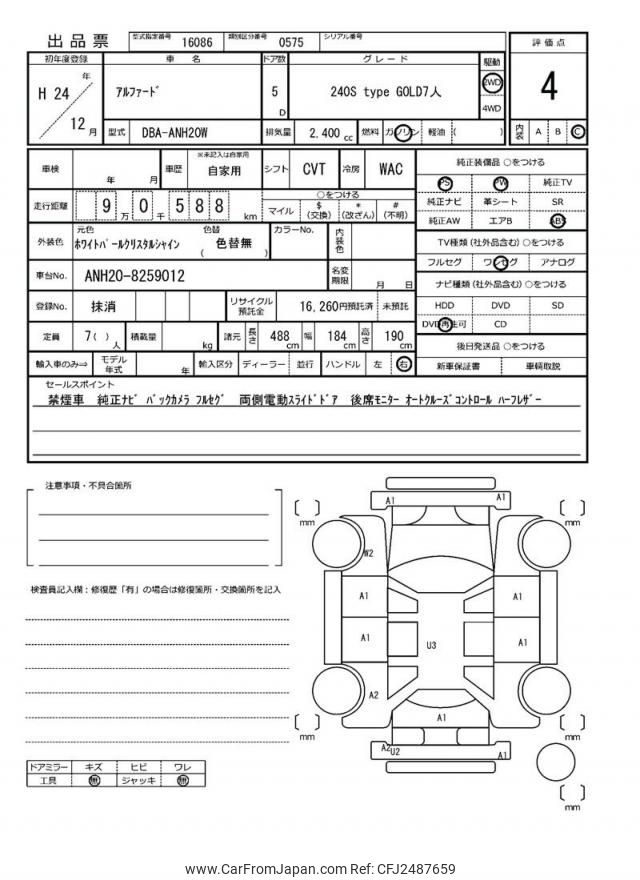 出品票 型式指定番号 16086 類別区分番号 0575 シリアル番号
評価点
4
内装 A B C
初年度登録 車名 ドア数 グレード 駆動
H 24 年 12 月 ｱﾙﾌｧｰﾄﾞ 5 D 240S type GOLD7人 2WD 4WD
型式 DBA-ANH20W 排気量 2,400 cc 燃料 ガソリン 軽油 ( )
車検 年 月 車歴 ※未記入は自家用 自家用 シフト CVT 冷房 WAC
走行距離 9 万 0 千 5 8 8 km
○をつける
マイル $(交換) *(改ざん) #(不明)
外装色 元色 ﾎﾜｲﾄﾊﾟｰﾙｸﾘｽﾀﾙｼｬｲﾝ 色替 ( 色替無 ) カラーNo. 内装色
車台No. ANH20-8259012 名変期限 月 日
登録No. 抹消 リサイクル預託金 16,260円預託済 未預託
定員 7( ) 人 積載量 kg 諸元 長さ 488 cm 幅 184 cm 高さ 190 cm
輸入車のみ⇒ モデル年式 年 輸入区分 ディーラー 並行 ハンドル 左 右
純正装備品 ○をつける
PS PW 純正TV
純正ナビ 革シート SR
純正AW エアB ABS
TV種類 (社外品含む) ○をつける
フルセグ ワンセグ アナログ
ナビ種類 (社外品含む) ○をつける
HDD DVD SD
DVD再生可 CD
後日発送品 ○をつける
新車保証書 車輌取説
セールスポイント
禁煙車 純正ﾅﾋﾞ ﾊﾞｯｸｶﾒﾗ ﾌﾙｾｸﾞ 両側電動ｽﾗｲﾄﾞﾄﾞｱ 後席ﾓﾆﾀｰ ｵｰﾄｸﾙｰｽﾞｺﾝﾄﾛｰﾙ ﾊｰﾌﾚｻﾞｰ
注意事項・不具合箇所
検査員記入欄：修復歴「有」の場合は修復箇所・交換箇所を記入
ドアミラー キズ ヒビ ワレ
工具 無 ジャッキ 無
A1 A1
mm mm
W2
A1 A1
A1 U3 A1
A2
A1
mm mm
A2 U2 A1
mm
www.CarFromJapan.com Ref: CFJ2487659